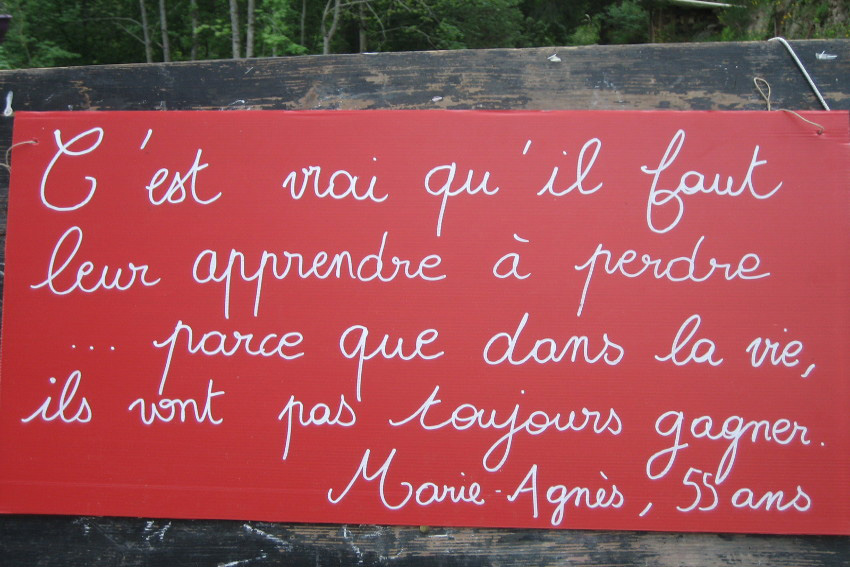 C'est vrai qu'il faut
leur apprendre à perdre
... parce que dans la vie,
ils vont pas toujours gagner.
Marie-Agnès, 55 ans